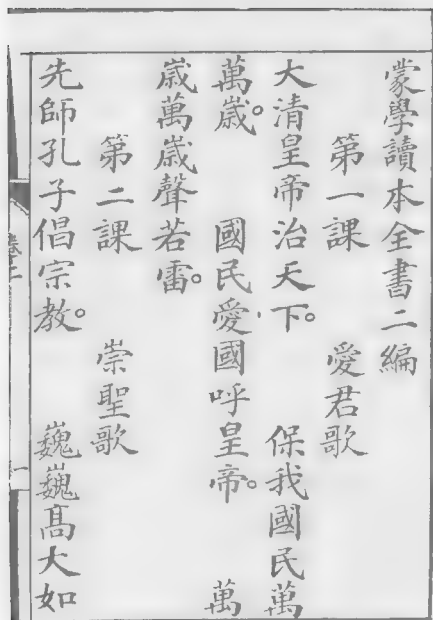 蒙學讀本全書二編
第一課　愛君歌
大清皇帝治天下。　保我國民萬
萬歲。　國民愛國呼皇帝。　萬
歲萬歲聲若雷。
第二課　崇聖歌
先師孔子倡宗教。　巍巍高大如
卷二
一